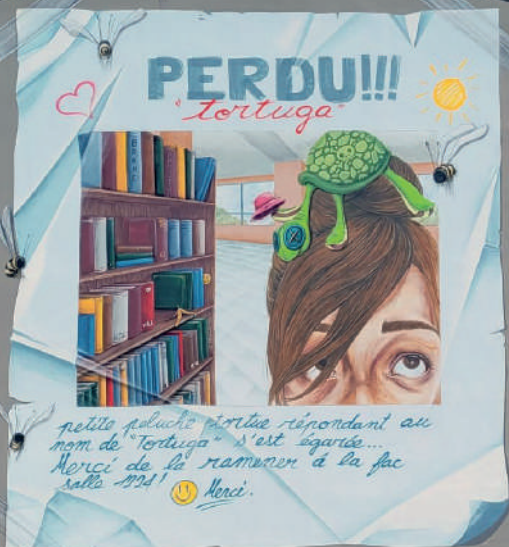 PERDU!!!
"tortuga"
petite peluche tortue répondant au
nom de "Tortuga" s'est égarée...
Merci de la ramener à la fac
salle 1224!
Merci.